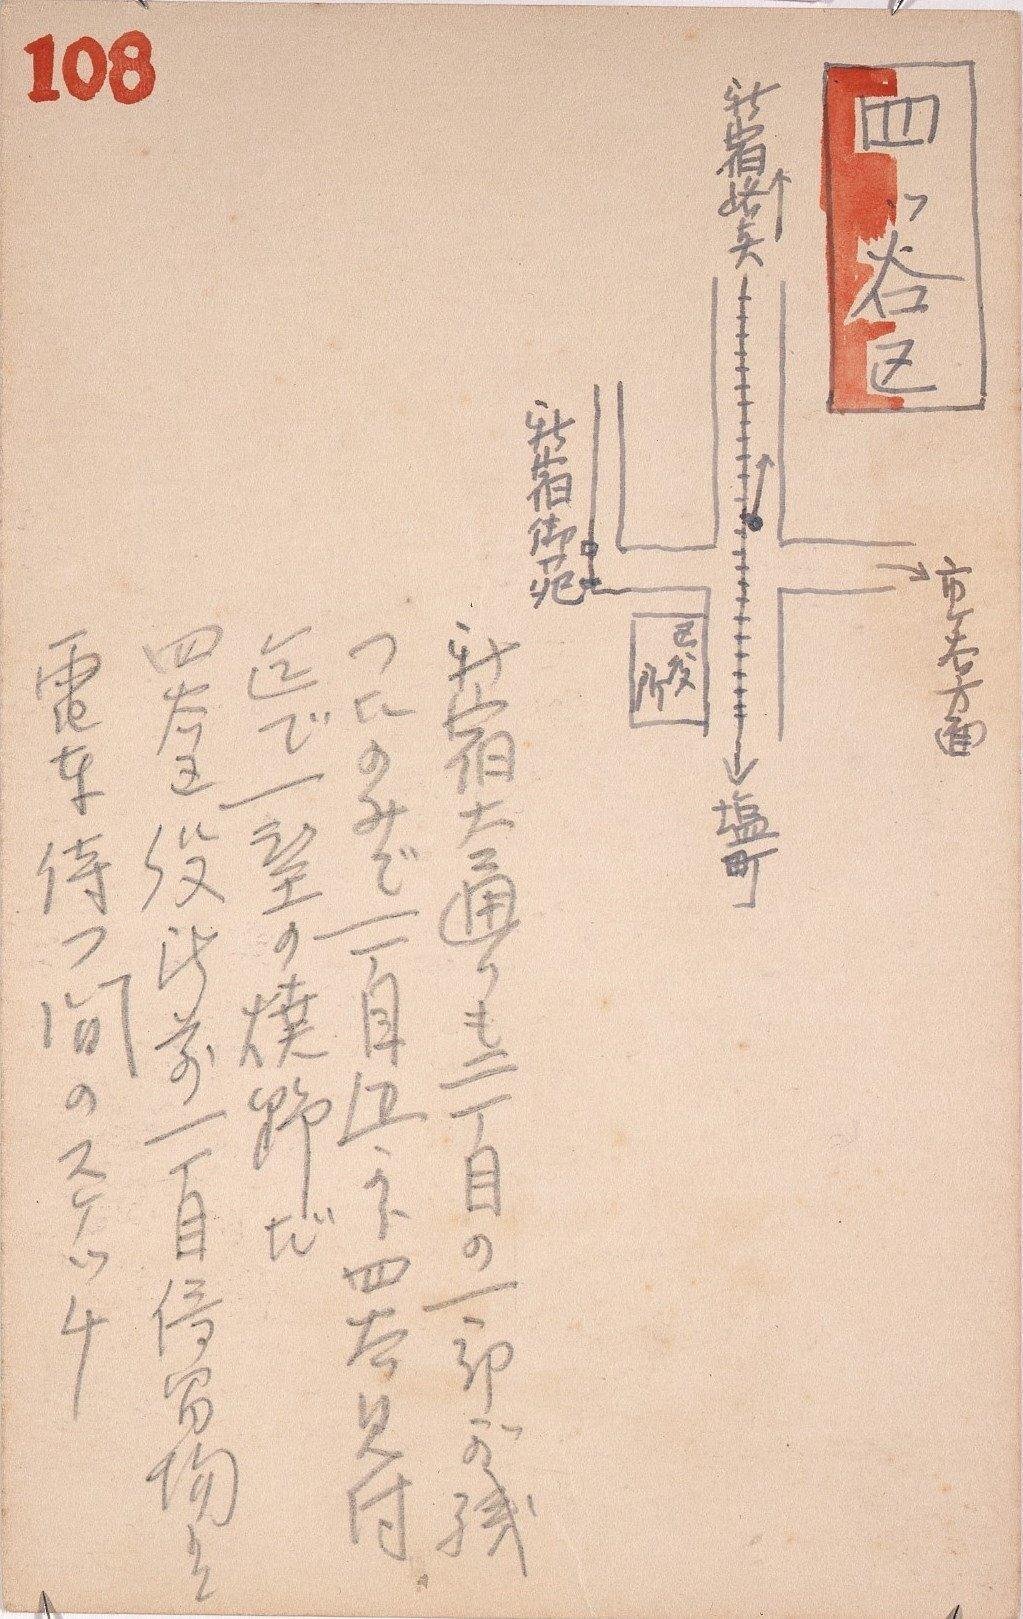 108
四ッ谷区
新宿終点
市ヶ谷方面
新宿御苑
区役所
塩町
新宿大通りも二丁目の一部が残
つたのみで一丁目辺から四谷見付
迄で一望の焼野だ
四谷区役所前一丁目停留場で
電車待つ間のスケッチ